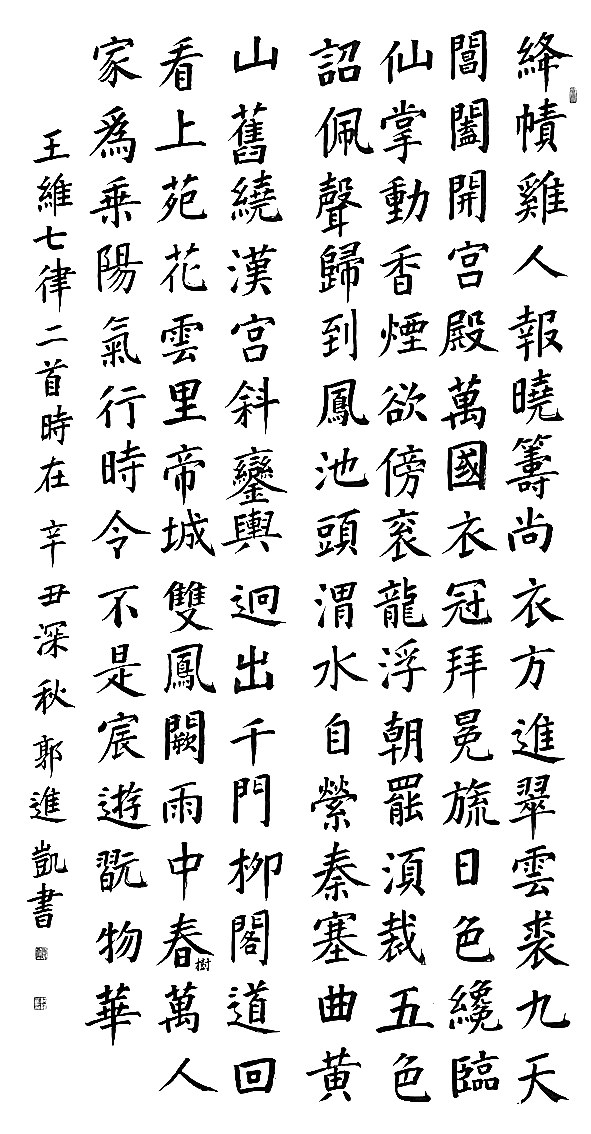 絳幘雞人報曉籌尚衣方進翠雲裘九天
閶闔開宮殿萬國衣冠拜冕旒日色纔臨
仙掌動香煙欲傍衮龍浮朝罷須裁五色
詔佩聲歸到鳳池頭渭水自縈秦塞曲黄
山舊繞漢宮斜鑾輿迥出千門柳閣道回
看上苑花雲里帝城雙鳳闕雨中春樹萬人
家為乘陽氣行時令不是宸遊翫物華
王維七律二首時在辛丑深秋郭進凱書